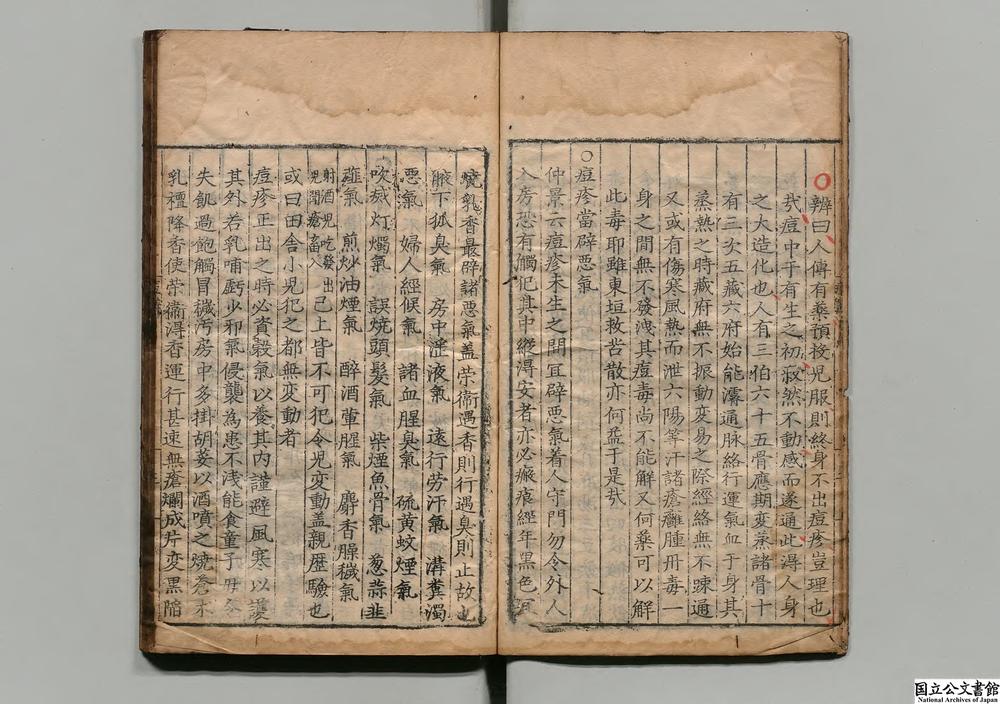 ○辨曰人傳有藥預投児服則終身不出痘疹豈理也
㢤痘中于有生之初寂然不動感而遂通此淂人身
之大造化也人有三伯六十五骨應期变蒸諸骨十
有三次五藏六府始能濬通脉絡行運氣血于身其
蒸熱之時藏府無不振動変易之際經絡無不踈通
又或有傷寒風熱而泄六陽等汗諸瘡癰腫丹毒一
身之間無不發洩其痘毒尚不能解又何藥可以解
此毒耶雖東垣救苦散亦何益于是㢤
○痘疹當辟悪氣
仲景云痘疹未生之間冝辟悪氣着人守門勿令外人
入房恐有觸犯其中縱淂安者亦必瘢痕經年黑色
燒乳香最辟諸悪氣盖荣衞遇香則行遇臭則止故也
腋下狐臭氣　房中淫液氣　遠行劳汗氣　溝糞濁
悪氣　婦人經候氣　諸血腥臭氣　硫黄蚊煙氣
吹滅灯燭氣　誤燒頭髮氣　柴煙魚骨氣　葱蒜韭
薤氣　煎炒油煙氣　醉酒葷腥氣　麝香臊穢氣
射酒児吃發出児聞瘡畜入　已上皆不可犯令児变動盖親歷驗也
或曰田舎小児犯之都無变動者
痘疹正出之時必資穀氣以養其内謹避風寒以護
其外若乳哺虧少邪氣侵襲為患不浅能食童子毋令
失飢過飽觸冒穢汚房中多掛胡荽以酒噴之燒蒼术
乳檀降香使荣衞淂香運行甚速無瘡爛成片变黒陷
国立公文書館
National Archives of Japan